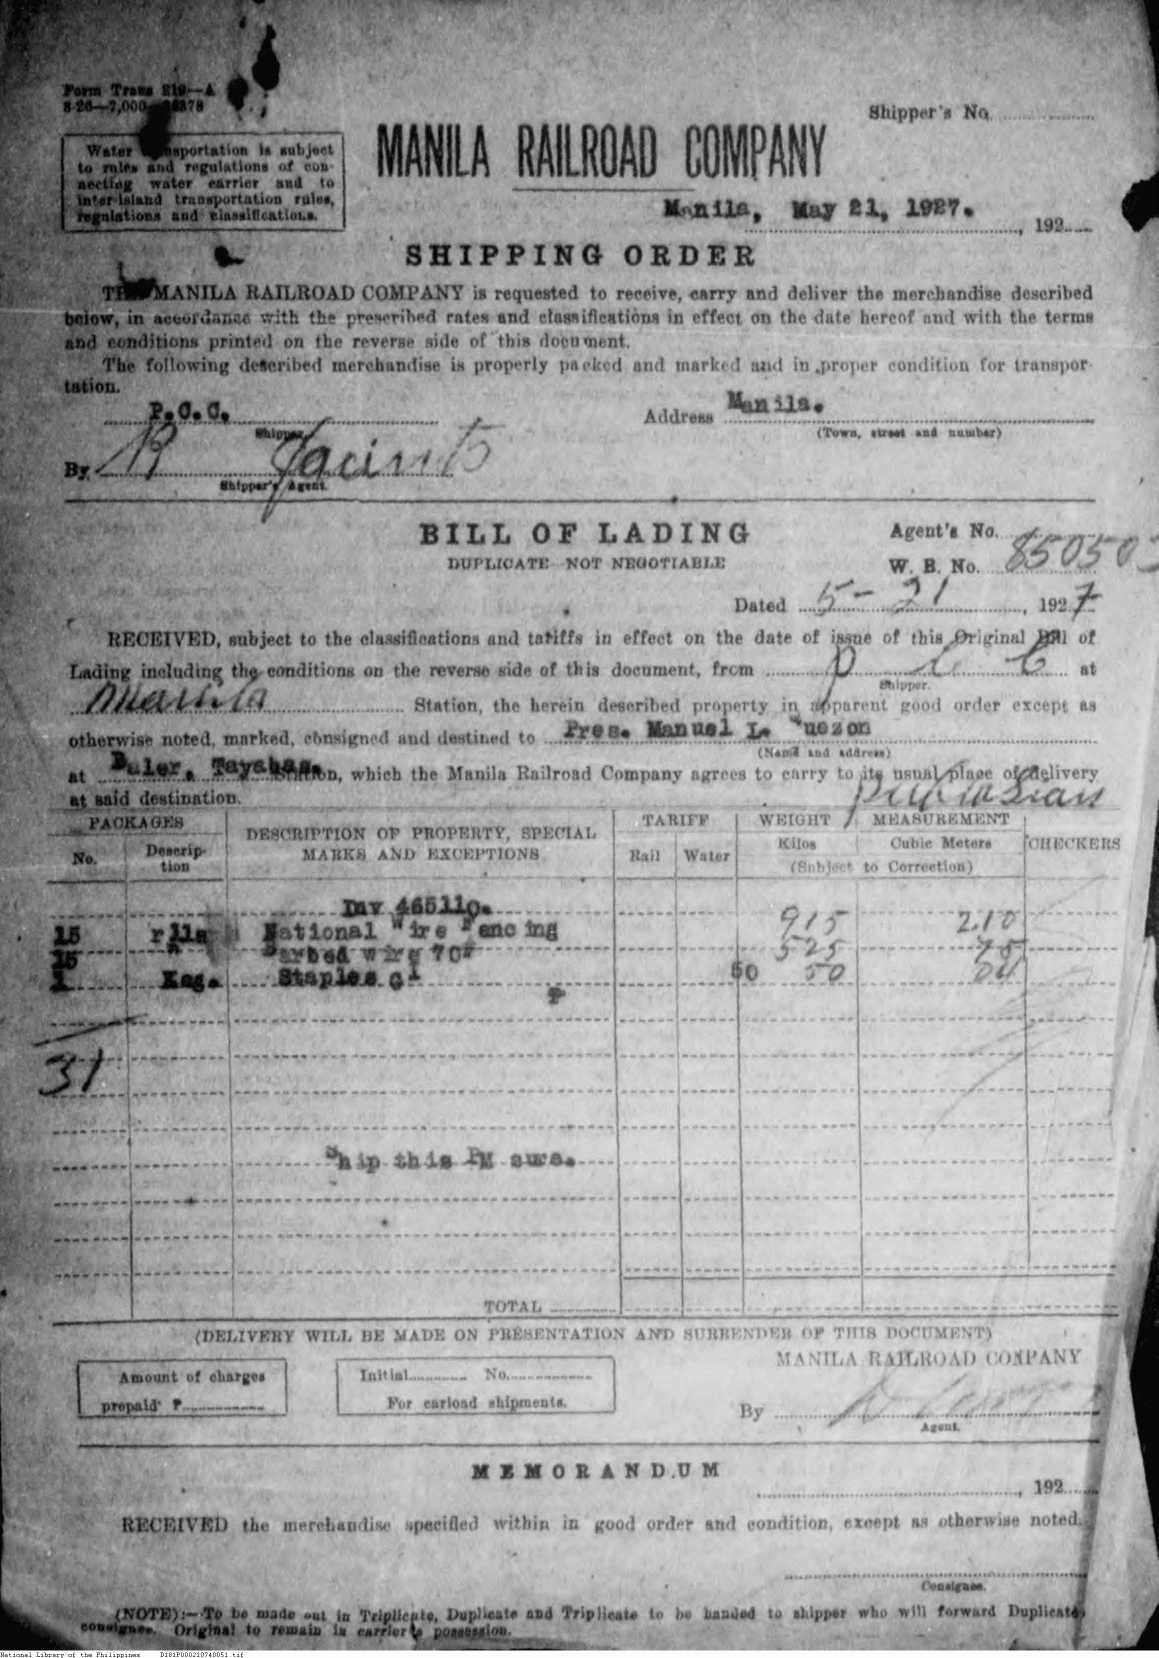 Form Trans 219—A
8-26—7,000
Shipper's No.
Water transportation is subject
to rules and regulations of con-
necting water carrier and to
inter-island transportation rules,
regulations and classifications.
MANILA RAILROAD COMPANY
Manila, May 21, 1927.
, 192
SHIPPING ORDER
THE MANILA RAILROAD COMPANY is requested to receive, carry and deliver the merchandise described
below, in accordance with the prescribed rates and classifications in effect on the date hereof and with the terms
and conditions printed on the reverse side of this document.
The following described merchandise is properly packed and marked and in proper condition for transpor-
tation.
P.C.C.
Address Manila.
Shipper
(Town, street and number)
By R Jacinto
Shipper's Agent.
BILL OF LADING
Agent's No.
DUPLICATE NOT NEGOTIABLE
W. B. No. 850503
Dated 5-21, 1927
RECEIVED, subject to the classifications and tariffs in effect on the date of issue of this Original Bill of
Lading including the conditions on the reverse side of this document, from P C C at
Shipper.
Manila Station, the herein described property in apparent good order except as
otherwise noted, marked, consigned and destined to Pres. Manuel L. Quezon
(Name and address)
at Baler, Tayabas. Station, which the Manila Railroad Company agrees to carry to its usual place of delivery
at said destination.
PACKAGES
DESCRIPTION OF PROPERTY, SPECIAL
MARKS AND EXCEPTIONS
TARIFF
WEIGHT
MEASUREMENT
CHECKERS
No.
Descrip-
tion
Rail
Water
Kilos
Cubic Meters
(Subject to Correction)
Inv 465110.
15 rlls National Wire Fencing 915 2.10
15 " Barbed wire 70# 525 75
1 Keg. Staples G1 50 50 04
P
31
Ship this PM sure.
TOTAL
(DELIVERY WILL BE MADE ON PRESENTATION AND SURRENDER OF THIS DOCUMENT)
MANILA RAILROAD COMPANY
Amount of charges
prepaid P
Initial No.
For carload shipments.
By
Agent.
MEMORANDUM
, 192
RECEIVED the merchandise specified within in good order and condition, except as otherwise noted.
Consignee.
(NOTE):—To be made out in Triplicate, Duplicate and Triplicate to be handed to shipper who will forward Duplicate
consignee. Original to remain in carrier's possession.
National Library of the Philippines D181P000210740051.tif